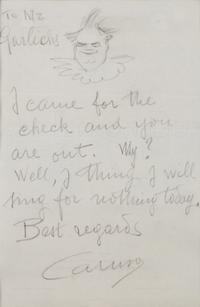 To Mr
Garlichs
I came for the
check and you
are out. Why?
Well, I thing I will
sing for nothing today.
Best regards
Caruso